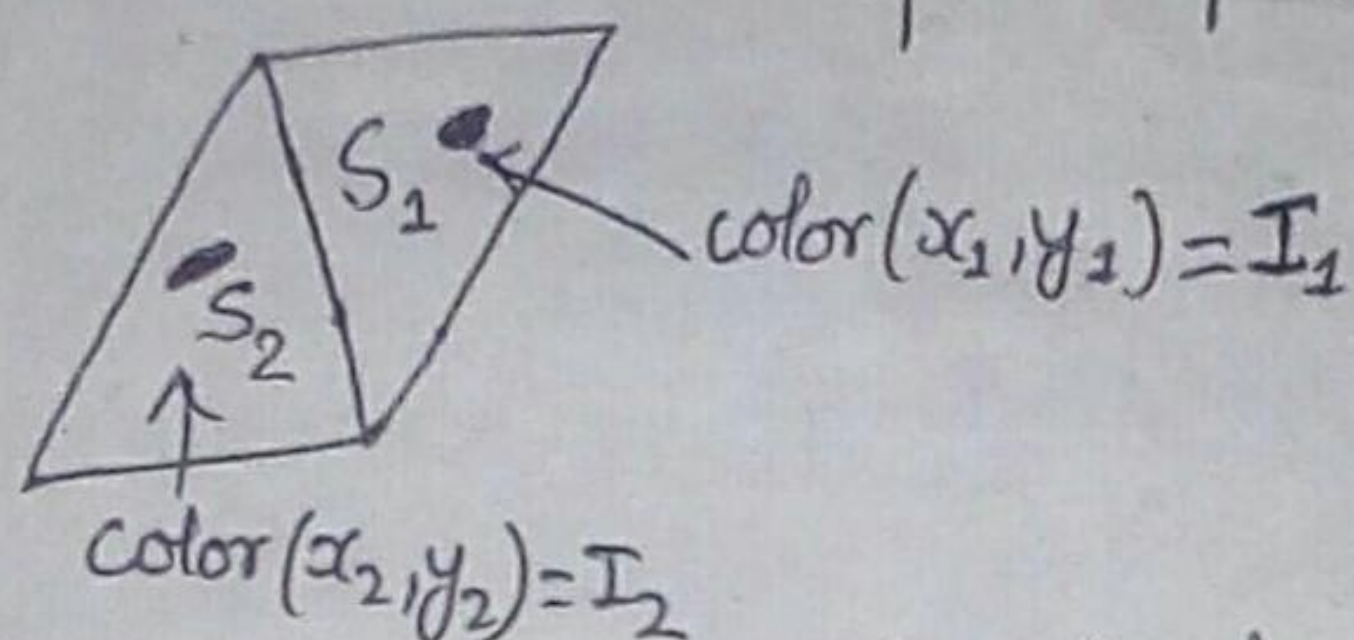 S₁
color(x₁,y₁)=I₁
S₂
color(x₂,y₂)=I₂